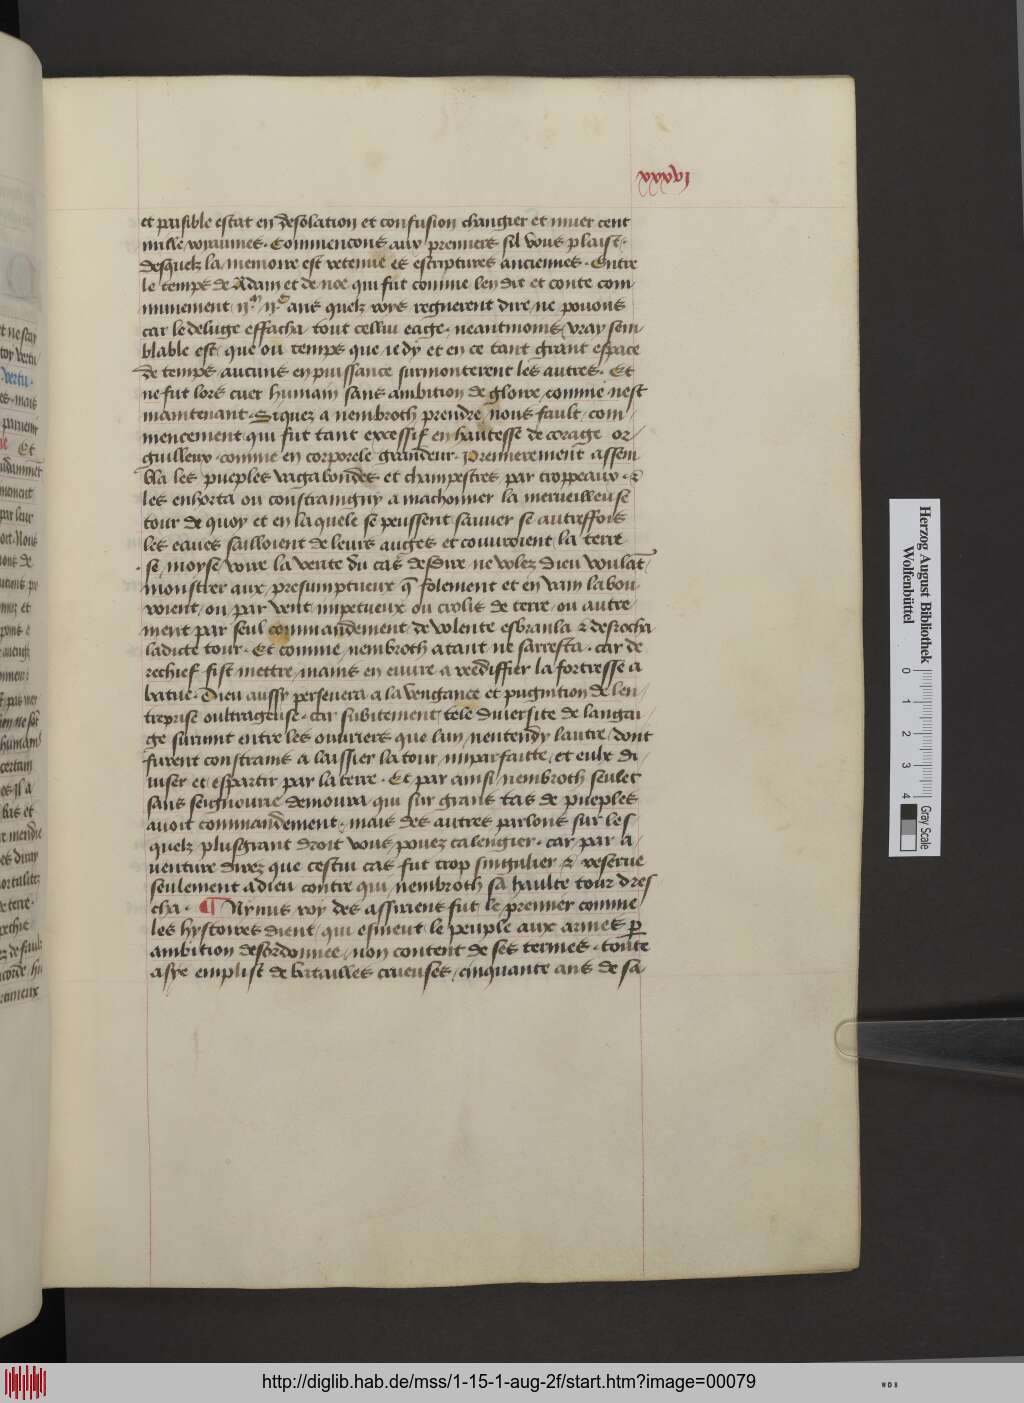 xxxvi
et paisible estat en desolation et confusion changier et muer cent
mille royaumes. Commencons aux premiers sil vous plaist.
desquelz la memoire est retenue es escriptures anciennes. Entre
le temps de Adam et de noe qui fut comme len dit et conte com/
munement ij.m ij.c ans quelz roys regnerent dire ne pouons
car le deluge effacha tout cellui eage. neantmoins vray sem/
blable est que ou temps que ie dy et en ce tant grant espace
de temps aucuns en puissance surmonterent les autres. Et
ne fut lors cuer humain sans ambition de gloire comme nest
maintenant. Siquez a nembroth prendre nous fault com/
mencement qui fut tant excessif en haultesse de corage or/
guilleux comme en corporele grandeur. Premierement assem
bla les pueples vagabondes et champestres par troppeaux. et
les enhorta ou constraingny a machonner la merueilleuse
tour de quoy et en laquele se peussent sauuer se autreffois
les eaues sailloient de leurs auges et couuroient la terre
. se moyse voire la verite du cas desire ne volez dieu voulāt
monstrer aux presumptueux q̄ folement et en vain labou
roient, ou par vent impetueux ou crolis de terre, ou autre
ment par seul commandement de volente esbranla et desrocha
ladicte tour. Et comme nembroth atant ne sarresta. car de
rechief fist mettre mains en euure a reediffier la fortresse a
batue. Dieu aussy perseuera a la vengance et pugnition de len/
treprise oultrageuse. car subitement tele diuersite de langai/
ge suruint entre les ouuriers que lun nentendy lautre, dont
furent constrains a laissier la tour imparfaitte, et eulx di/
uiser et espartir par la terre. Et par ainsi nembroth seulet
sans seignourie demoura qui sur grans tas de pueples
auoit commandement. mais des autres parlons sur les
quelz plusgrant droit vous pouez calengier. car par a/
uenture direz que cestui cas fut trop singulier et reserue
seulement a dieu contre qui nembroth sa haulte tour dres
cha. ¶ Nynus roy des assiriens fut le premier comme
les hystoires dient, qui esmeut le peuple aux armes p̱
ambition desordonnee, non content de ses termes. toute
asye emplist de batailles crueuses, cinquante ans de sa
Herzog August Bibliothek
Wolfenbüttel
0 1 2 3 4
Gray Scale
http://diglib.hab.de/mss/1-15-1-aug-2f/start.htm?image=00079
WDB